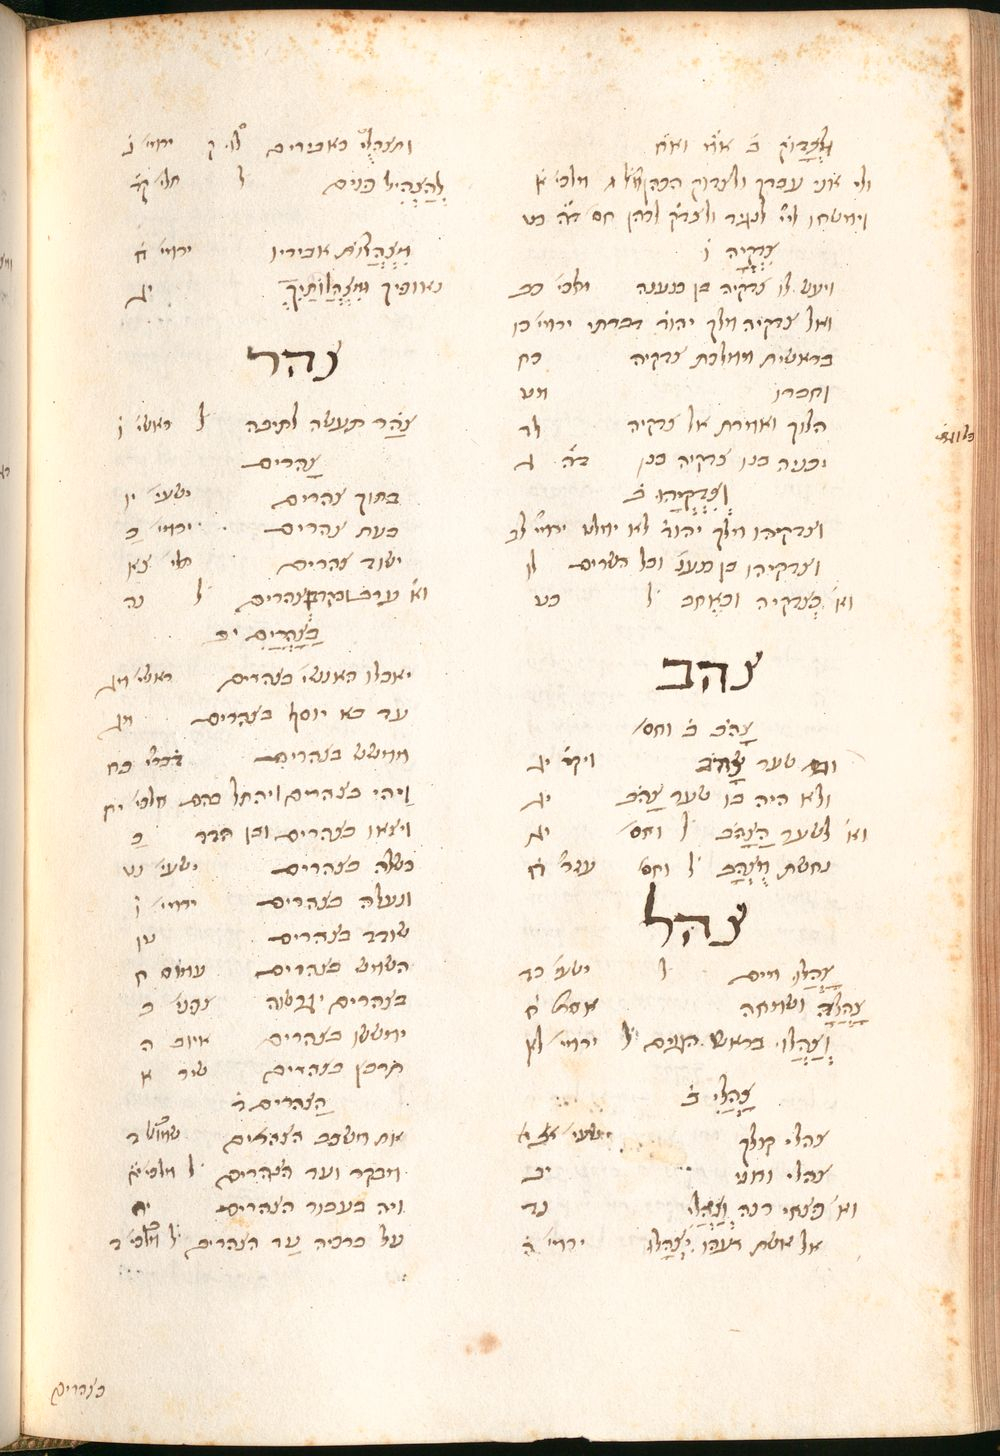 ולצדוק ב׳ את׳ ואח׳
ולי אני עבדך ולצדוק הכהן מלכי׳ א
וימשחו ליי׳ לנגיד ולצדוק לכהן חס׳ דה׳ כט
צדקיה ו׳
ויעש לו צדקיה בן כנענה מלכי׳ כב
ואל צדקיה מלך יהוד׳ דברתי ירמי׳ כז
בראשית ממלכת צדקיה כח
וחברו מט
הלוך ואמרת אל צדקיה לד
יכניה בנו צדקיה בנו דה׳ ג
וצדקיהו ב׳
וצדקיהו מלך יהוד׳ לא ימלט ירמי׳ לב
וצדקיהו בן חנני׳ וכל השרים לו
וא׳ כצדקיה וכאחב ל׳ כט
צהב
צהב ב׳ וחס׳
ובו שער צהב ויקר׳ יג
ולא היה בו שער צהב יג
וא׳ לשער הצהב ל׳ וחס׳ יג
נחשת מצהב ל׳ וחס׳ עזר׳ ח
צהל
צהלו מים ל׳ ישעי׳ כד
צהלה ושמחה אסתר ח
וצהלו בראש הגוים ל׳ ירמי׳ לא
צהלי ב׳
צהלי קולך ישעי׳ י
צהלי ורני יב
וא׳ פצחי רנה וצהלי נד
אל אשת רעהו יצהלו ירמי׳ ה
ותצהלי כאבירים ק ירמי׳ נ
להצהיל פנים ל׳ תלי׳ קד
מצהלות אביריו ירמי׳ ח
נאופיך ומצהלותיך יג
צהר
צהר תעשה לתיבה ל׳ ראשי׳ ו
צהרים
בתוך צהרים ישעי׳ יו
בעת צהרים ירמי׳ כ
ישוד צהרים תלי׳ צא
וא׳ ערב ובקר וצהרים ל׳ נה
בצהרים יב
יאכלו האנשי׳ בצהרים ראשי׳ מג
עד בא יוסף בצהרים מג
ממשש בצהרים דברי׳ כח
ויהי בצהרים ויהתל בהם מלכי׳ יח
ויצאו בצהרים ובן הדד כ
כשלנו בצהרים ישעי׳ נט
ונעלה בצהרים ירמי׳ ו
שודד בצהרים טו
השמש בצהרים עמוס ח
בצהרים יגרשוה צפני׳ ב
ימששו בצהרים איוב ה
תרביץ בצהרים שיר א
הצהרים ד׳
את משכב הצהרים שמואל ד
מבקר ועד הצהרים ל׳ מלכי׳ יח
ויהי כעבור הצהרים יח
על ברכיה עד הצהרים ל׳ מלכי׳ ד
בצהרים